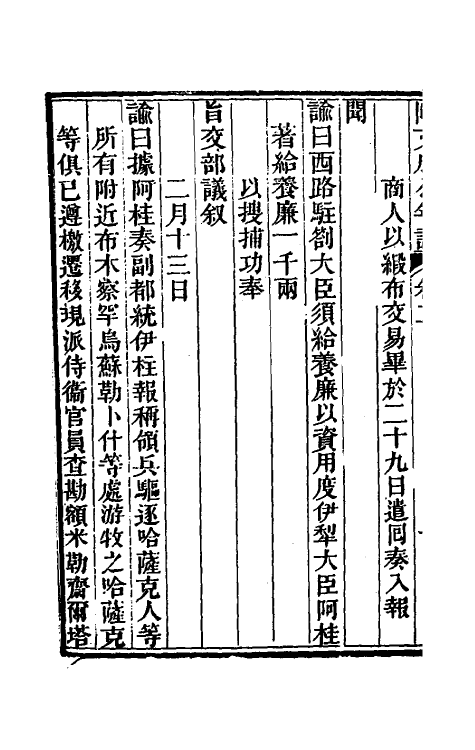 商人以緞布交易畢於二十九日遣回奏入報
聞
諭曰西路駐劄大臣須給養廉以資用度伊犁大臣阿桂
著給養廉一千兩
以搜捕功奉
旨交部議叙
二月十三日
諭曰據阿桂奏副都統伊柱報稱領兵驅逐哈薩克人等
所有附近布木察罕烏蘇勒卜什等處游牧之哈薩克
等俱已遵檄遷移現派侍衞官員查勘額米勒齋爾塔